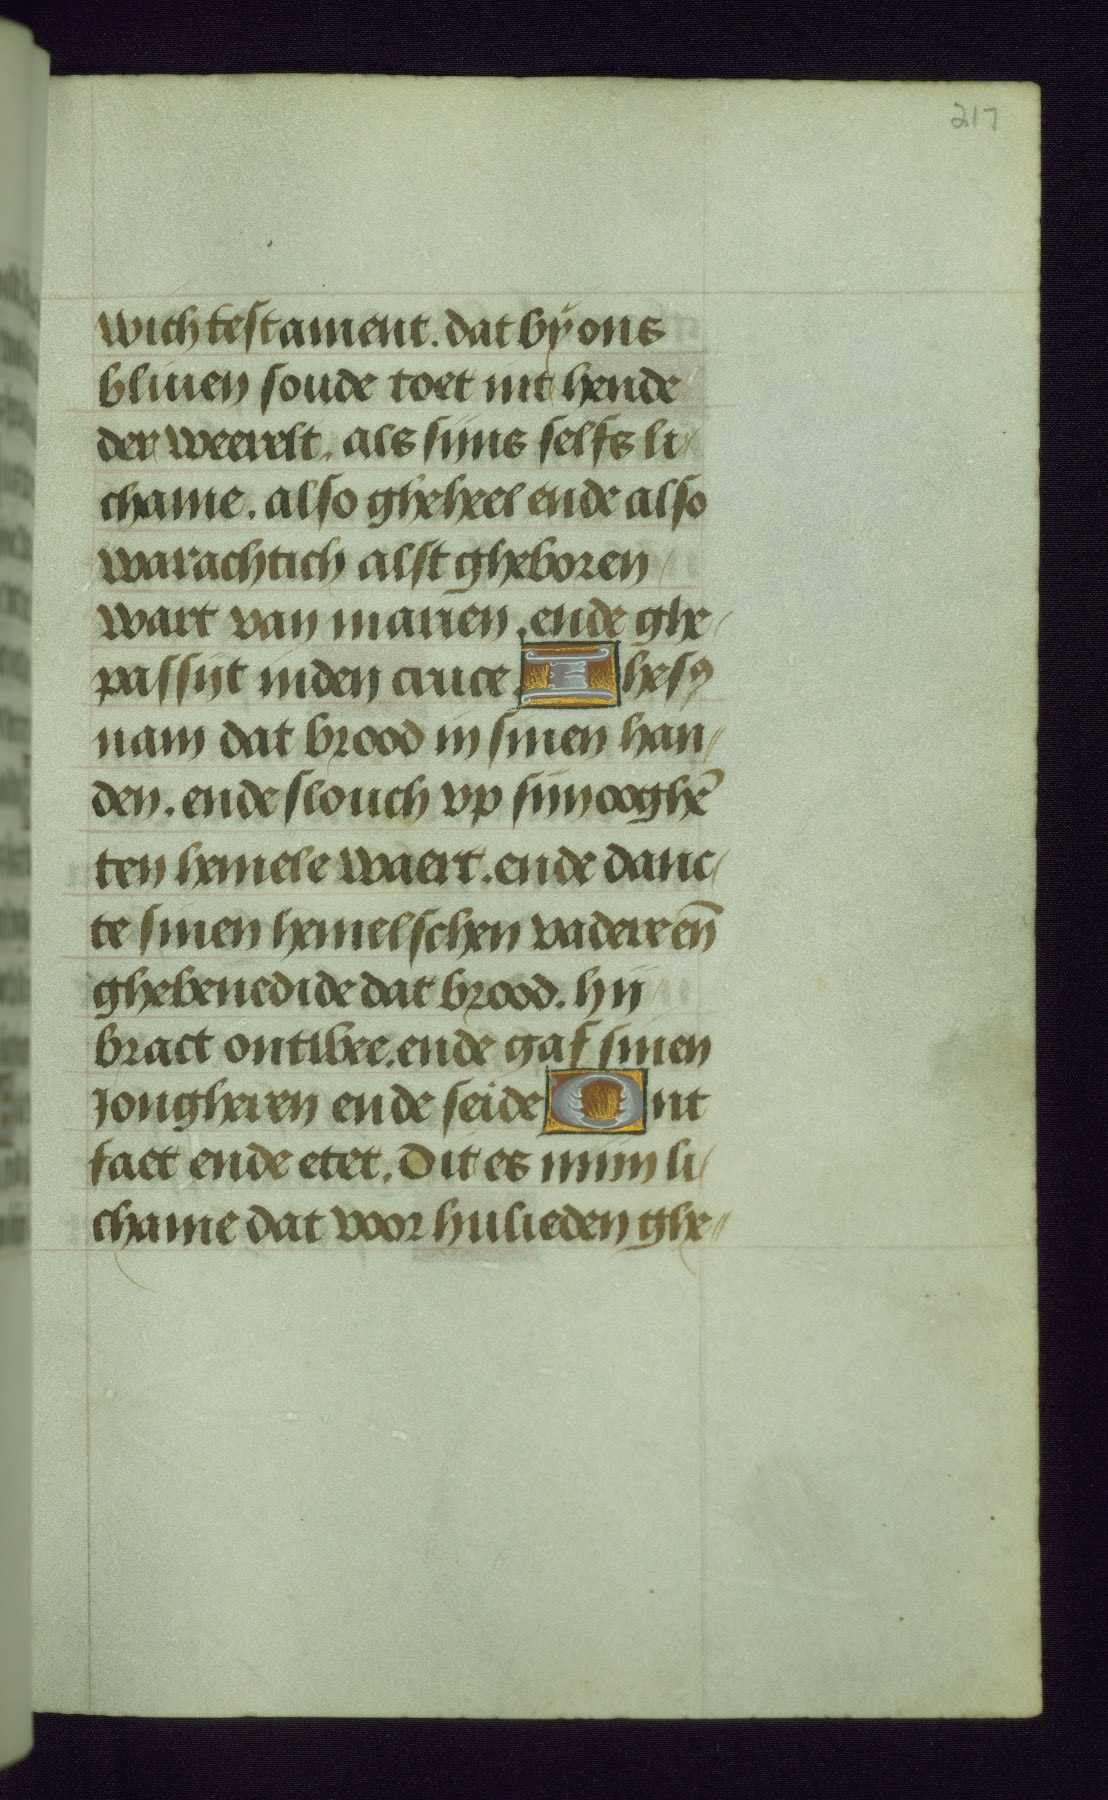 217
wich testament. dat by ons
bliuen soude toet int hende
der weerelt. als sijns selfs li/
chame. also gheheel ende also
warachtich alst gheboren /
wart van marien. ende ghe/
passijt inden cruce. Ihesꝰ
nam dat brood in sinen han//
den. ende slouch vp sijn ooghē
ten hemele waert. ende danc/
te sinen hemelschen vadere eñ
ghebenedide dat brood. hij
bract ontwee. ende gaf sinen
Jongheren ende seide Ont
faet ende etet. Dit es mijn li/
chame dat voor hulieden ghe//